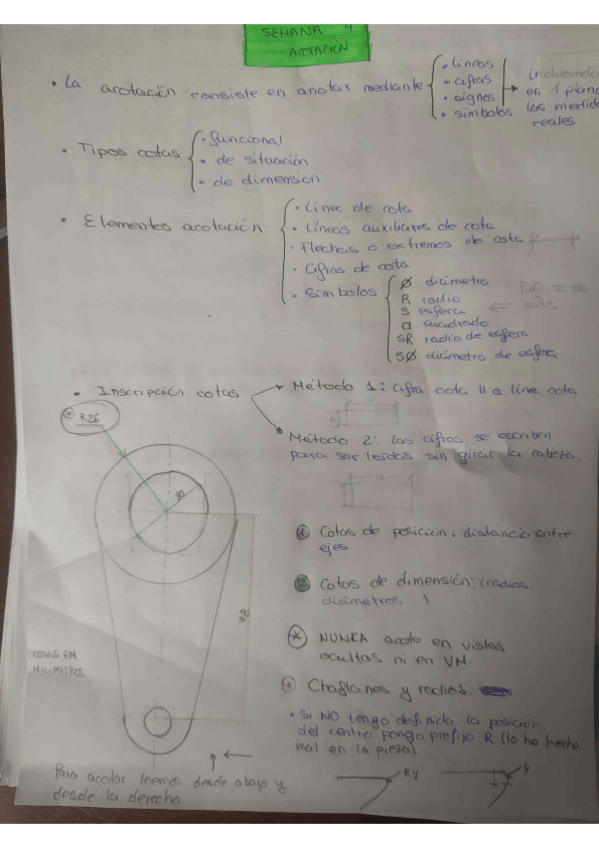 SEMANA 4
ACOTACIÓN
• La acotación consiste en anotar mediante
• líneas
• cifras
• signos
• símbolos
indicando
en 1 plano
las medidas
reales
• Tipos cotas
• funcional
• de situación
• de dimension
• Elementos acotación:
• Línea de cota
• Líneas auxiliares de cota
• Flechas o extremos de cota
• Cifras de cota
• Símbolos
Ø diámetro
R radio
S esfera
□ cuadrado
SR radio de esfera
SØ diámetro de esfera
• Inscripción cotas
Método 1: cifra cota || a línea cota
Método 2: las cifras se escriben
para ser leídas sin girar la cabeza.
① Cotas de posición: distancia entre
ejes
② Cotas de dimensión: (radios,
diámetros...)
* NUNCA acoto en vistas
ocultas ni en VM.
Chaflanes y radios:
• Si NO tengo definida la posición
del centro pongo prefijo R (lo he hecho
mal en la pieza)
R4
4
78
COTAS EM
MILIMETROS
Para acotar leemos desde abajo y
desde la derecha